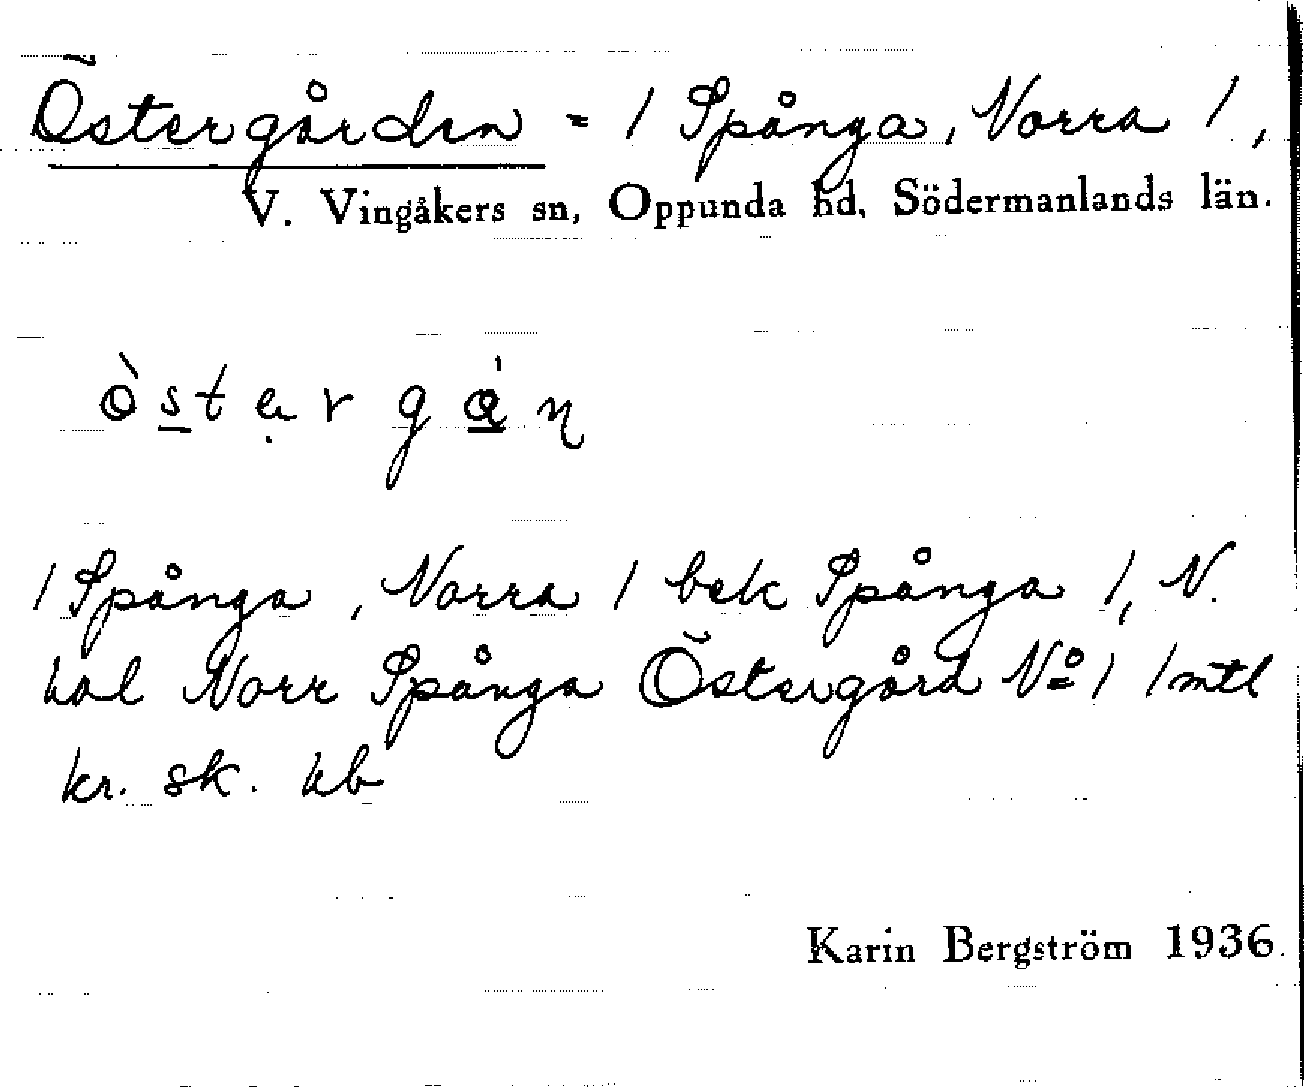 Östergården = 1 Spånga, Norra 1,
V. Vingåkers sn, Oppunda hd, Södermanlands län.
1 Spånga, Norra 1 bek Spånga 1, N.
hal Norr Spånga Östergård Nº 1 1 mtl
kr. sk. hb
Karin Bergström 1936.